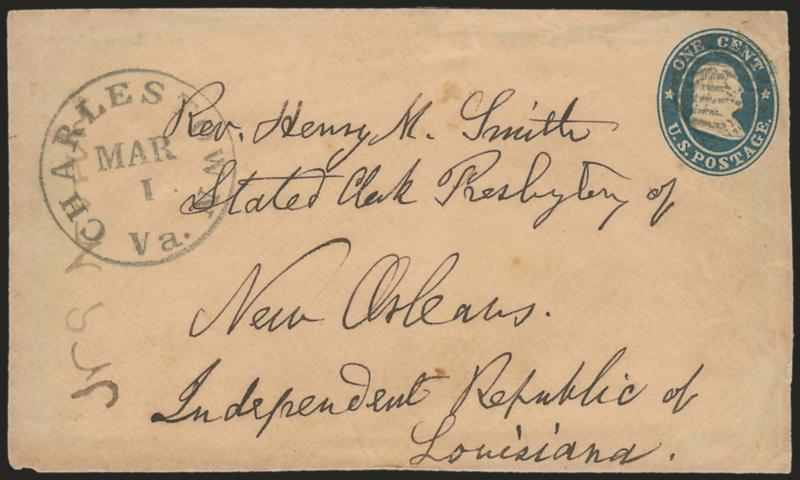 ONE CENT
U.S. POSTAGE.
CHARLESTOWN
MAR
1
Va.
Rev. Henry M. Smith
Stated Clerk Presbytery of
New Orleans.
Independent Republic of
Louisiana.